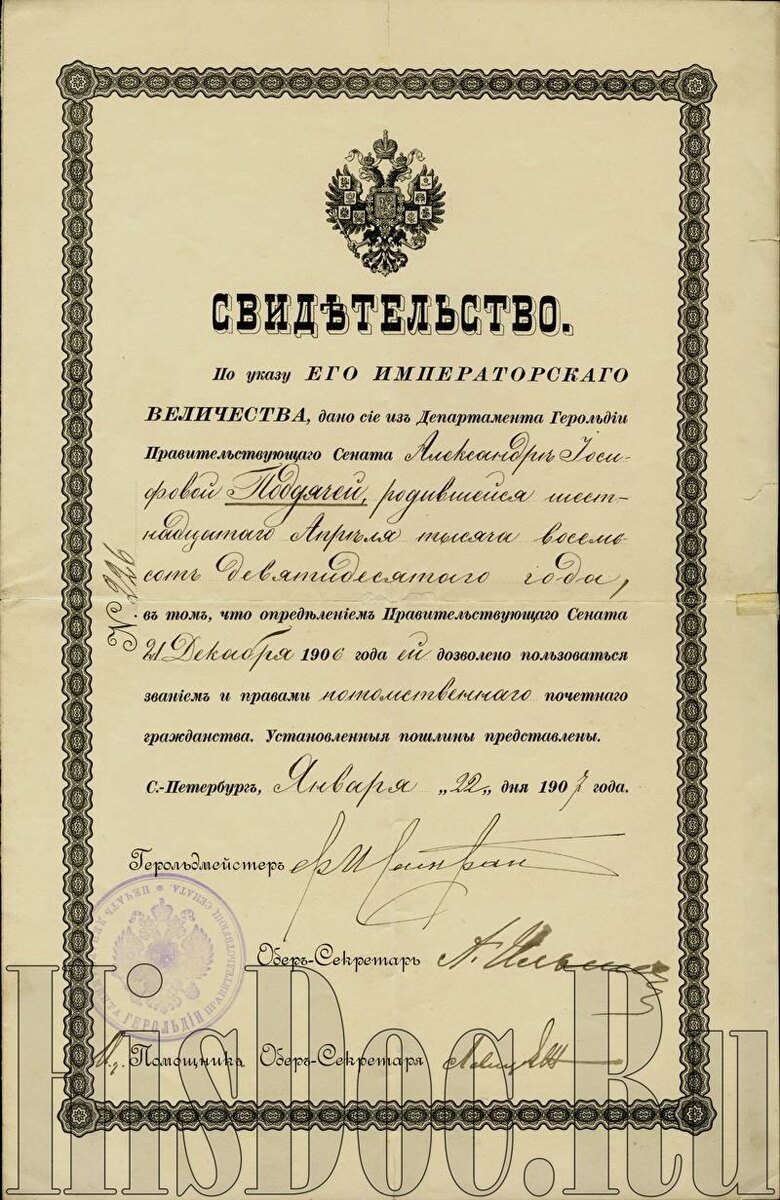 СВИДѢТЕЛЬСТВО.
По указу ЕГО ИМПЕРАТОРСКАГО
ВЕЛИЧЕСТВА, дано сіе изъ Департамента Герольдіи
Правительствующаго Сената Александрѣ Іоси-
фовой Поддячей, родившейся шест-
надцатаго Апрѣля тысяча восемь-
сотъ девятидесятаго года,
№ 226
въ томъ, что опредѣленіемъ Правительствующаго Сената
21 Декабря 1906 года ей дозволено пользоваться
званіемъ и правами потомственнаго почетнаго
гражданства. Установленныя пошлины представлены.
С.-Петербургъ, Января „22„ дня 1907 года.
Герольдмейстеръ
Оберъ-Секретарь А.
Помощника Оберъ-Секретаря
ПЕЧАТЬ ДЕПАРТАМЕНТА ГЕРОЛЬДІИ ПРАВИТЕЛЬСТВУЮЩ. СЕНАТА.
HisDoc.Ru